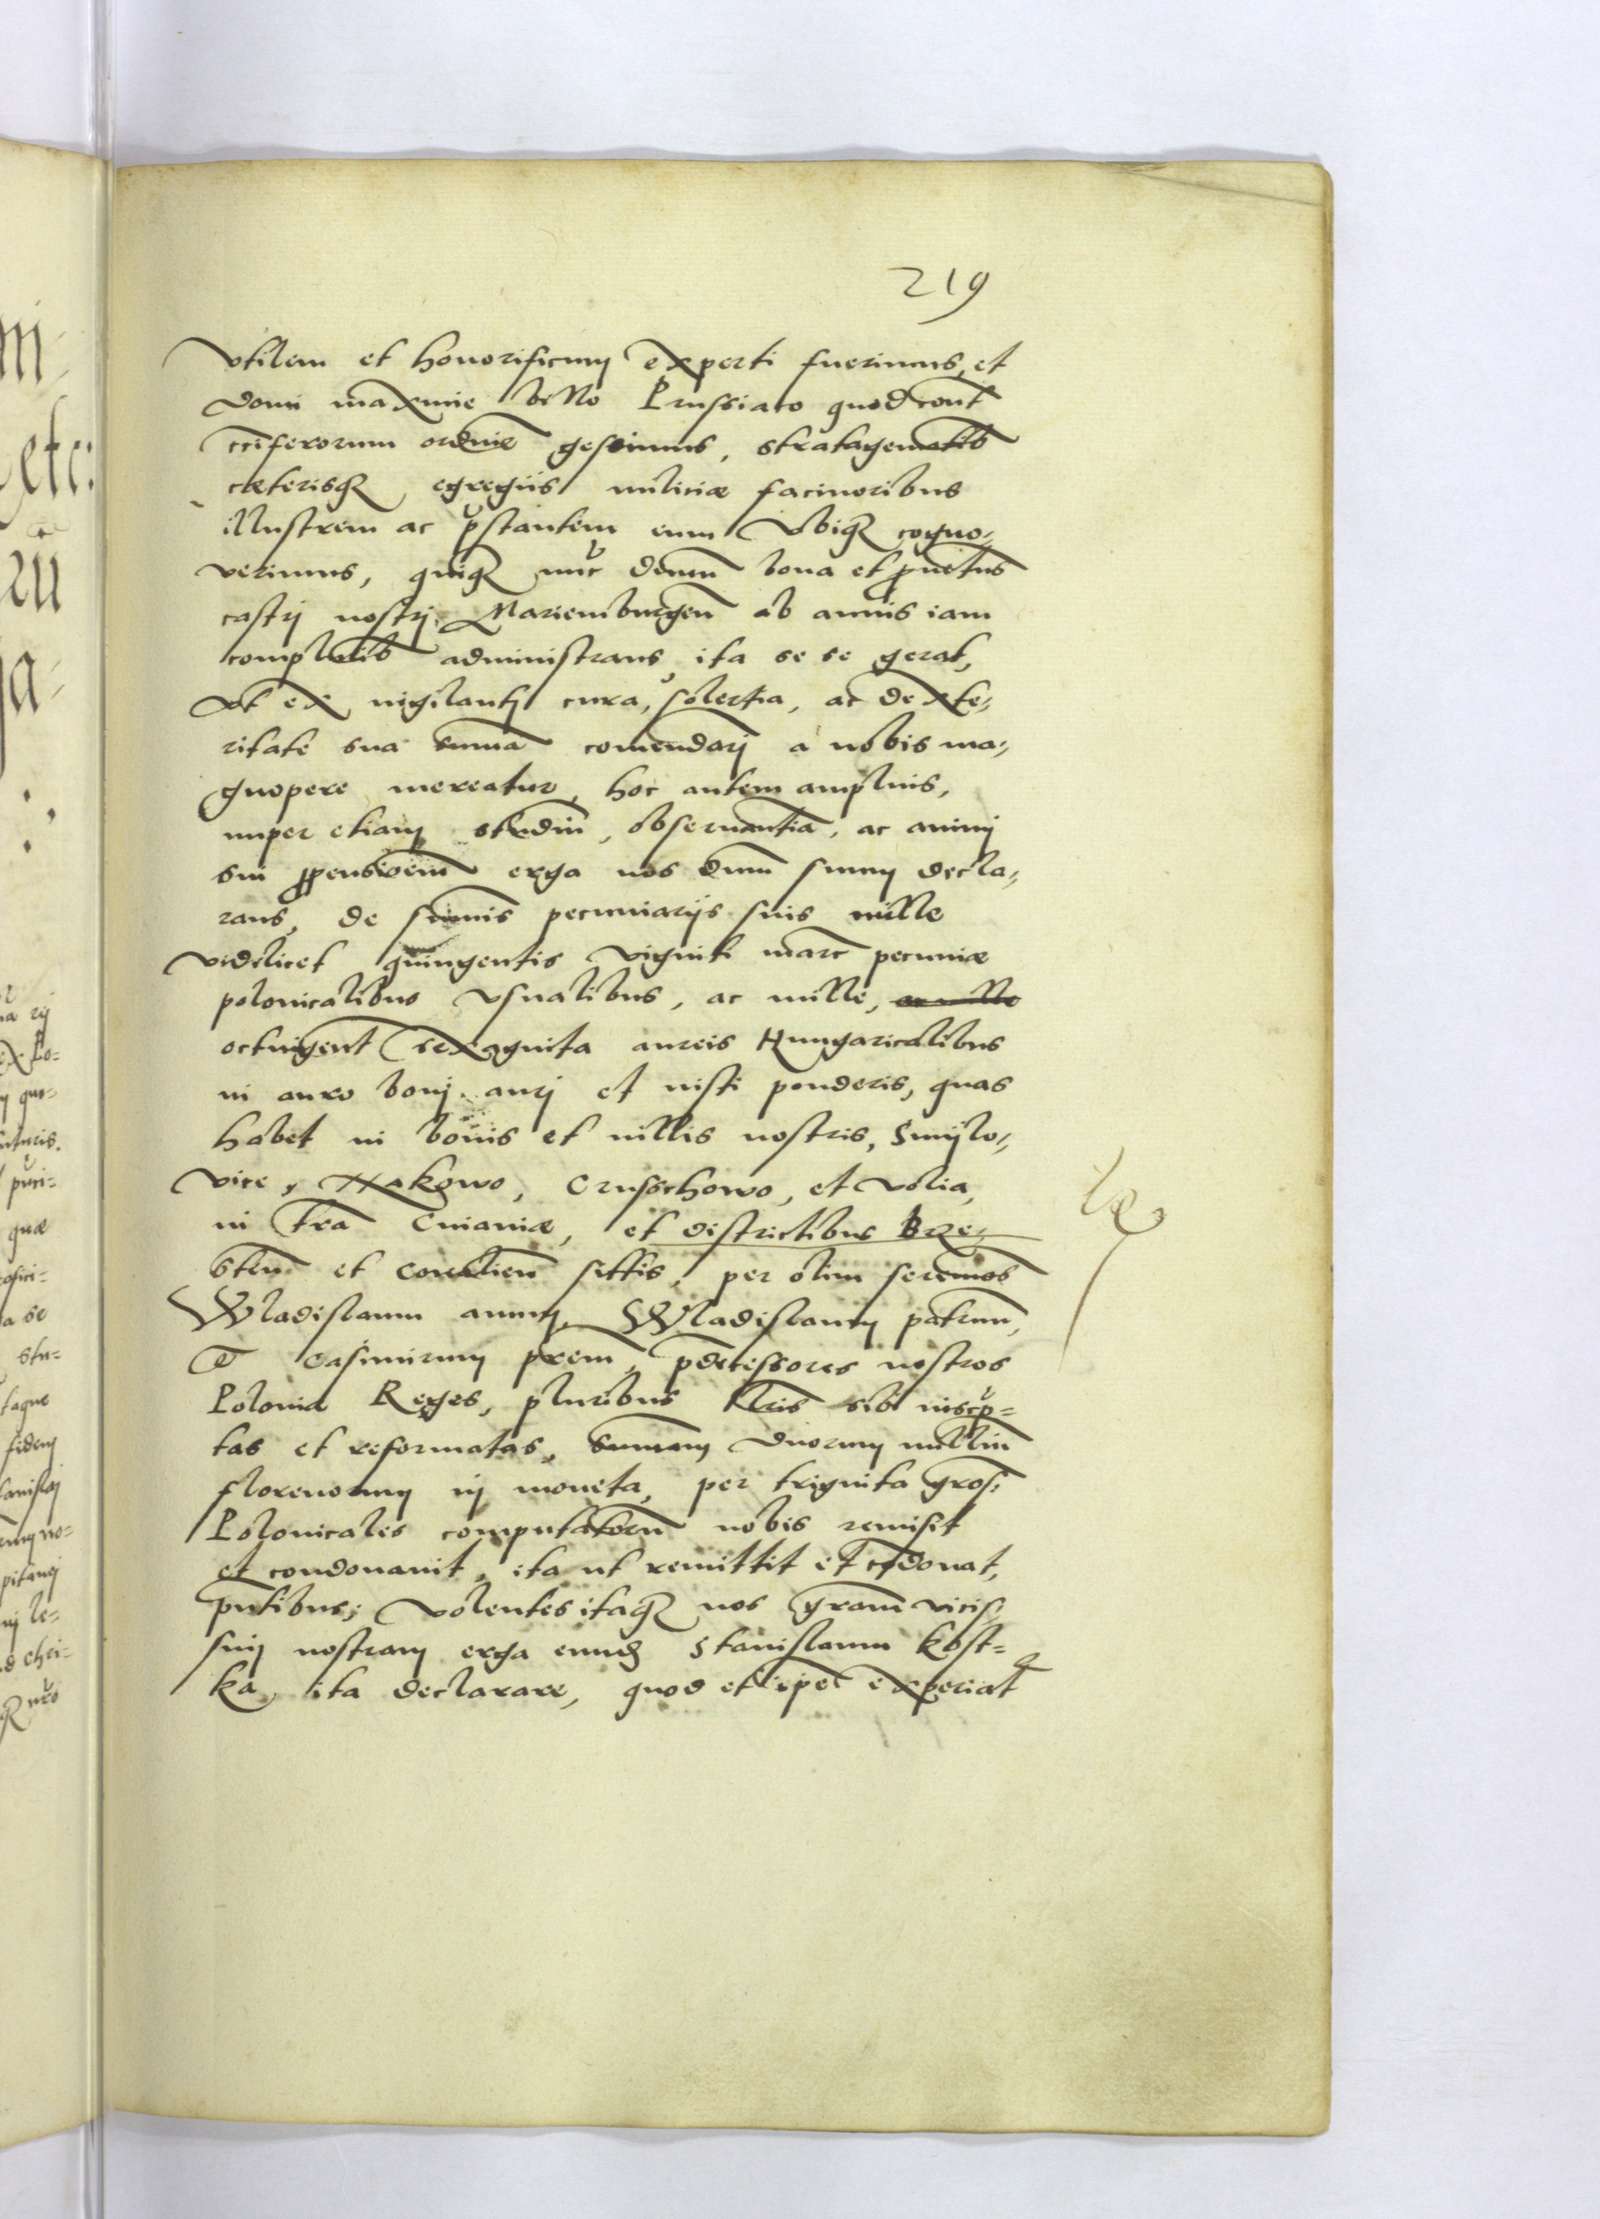 219
vtilem et honorificum experti fuerimus, et
domi maxime bello Prussiaco quod cont
cciferorum ordinē gessimus, stratagematib
cæterisq egregiis militiæ facinoribus
illustrem ac p̄stantem eum vbiq cogno-
verimus, quiq nūc demū bona et p̱uetus
castrj nostrj Mariemburgeñ ab annis iam
complurib administrans, ita se se gerat,
vt ex vigilantj cura, solertia, ac dexte-
ritate sua summa comendarj a nobis ma-
gnopere mereatur, hoc autem amplius,
nuper etiam studiū, obseruantiā, ac animj
sui p̱pensioem̄ erga nos dnm̄ suum decla-
rans, de summis pecuniarijs suis mille
videlicet quingentis viginti marc̄ pecuniæ
polonicalibus vsualibus, ac mille, ac mille
octuigent sexaginta aureis Hungaricalibus
in auro bonj aurj et iusti ponderis, quas
habet in bonis et villis nostris, Smijlo-
vice, Xzakowo, Crusschowo, et volia,
in trā Cuiaviæ, et districtibus Brze-
steñ et Cowalieñ sittis, per olim serēmos
Wladislaum auum, Wladislaum patruū,
& Casimirum prem̄, p̄decessores nostros
Poloniæ Reges, pluribus lr̄is sibi inscrip-
tas et reformatas, summam duorum milliū
florenorum in moneta, per triginta gros:
Polonicales computatorū nobis remisit
et condonauit, ita ut remittit et cōdonat,
pn̄tibus; volentes itaq nos gram̄ vicis-
sim nostram erga eundē Stanislaum Kost-
ka, ita declarare, quod et ipse experiat